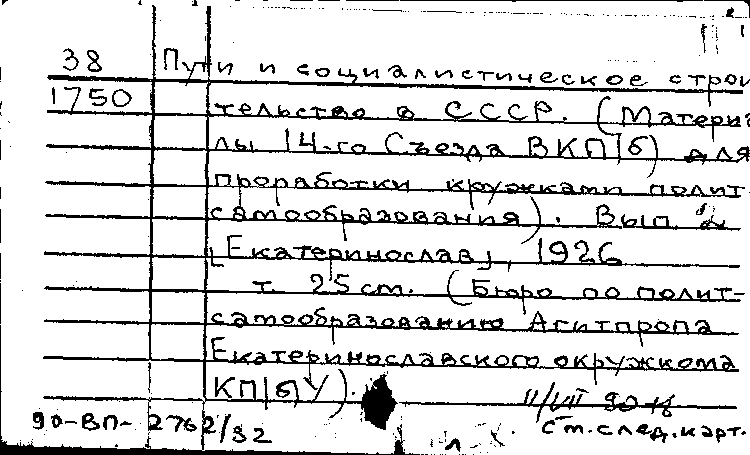 38 Пути и социалистическое строи
1750 тельство в СССР. (Материа
лы 14-го Съезда ВКП/б) для
проработки кружками полит-
самообразования). Вып. 2
[Екатеринослав], 1926
т. 25 cm. (Бюро по полит-
самообразованию Агитпропа
Екатеринославского окружкома
КП/б/У).
90-ВП-2762/92
Ст. след. карт.